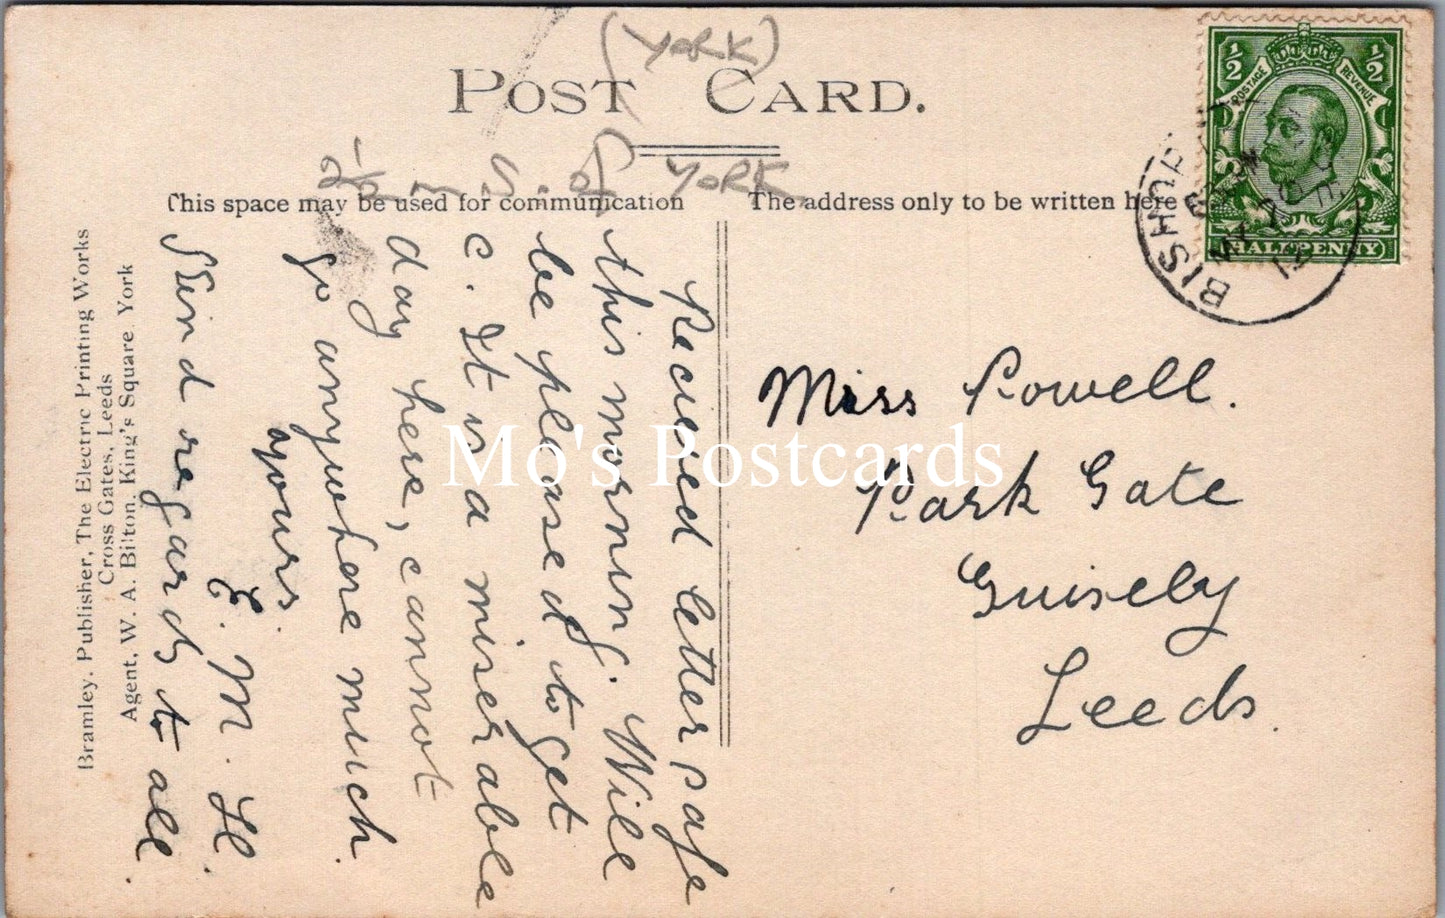 (YORK)
POST CARD.
2½ m S. of YORK
This space may be used for communication
The address only to be written here
½ ½
POSTAGE REVENUE
HALFPENNY
BISHOP
MY
12
Recieved letter safe
this morning. Will
be pleased to get
c. It is a miserable
day here, cannot
go anywhere much.
yours.
E. M. H.
Kind regards to all.
Miss Powell.
Park Gate
Guisely
Leeds.
Bramley, Publisher, The Electric Printing Works
Cross Gates, Leeds
Agent, W. A. Bilton, King's Square, York
Mo's Postcards